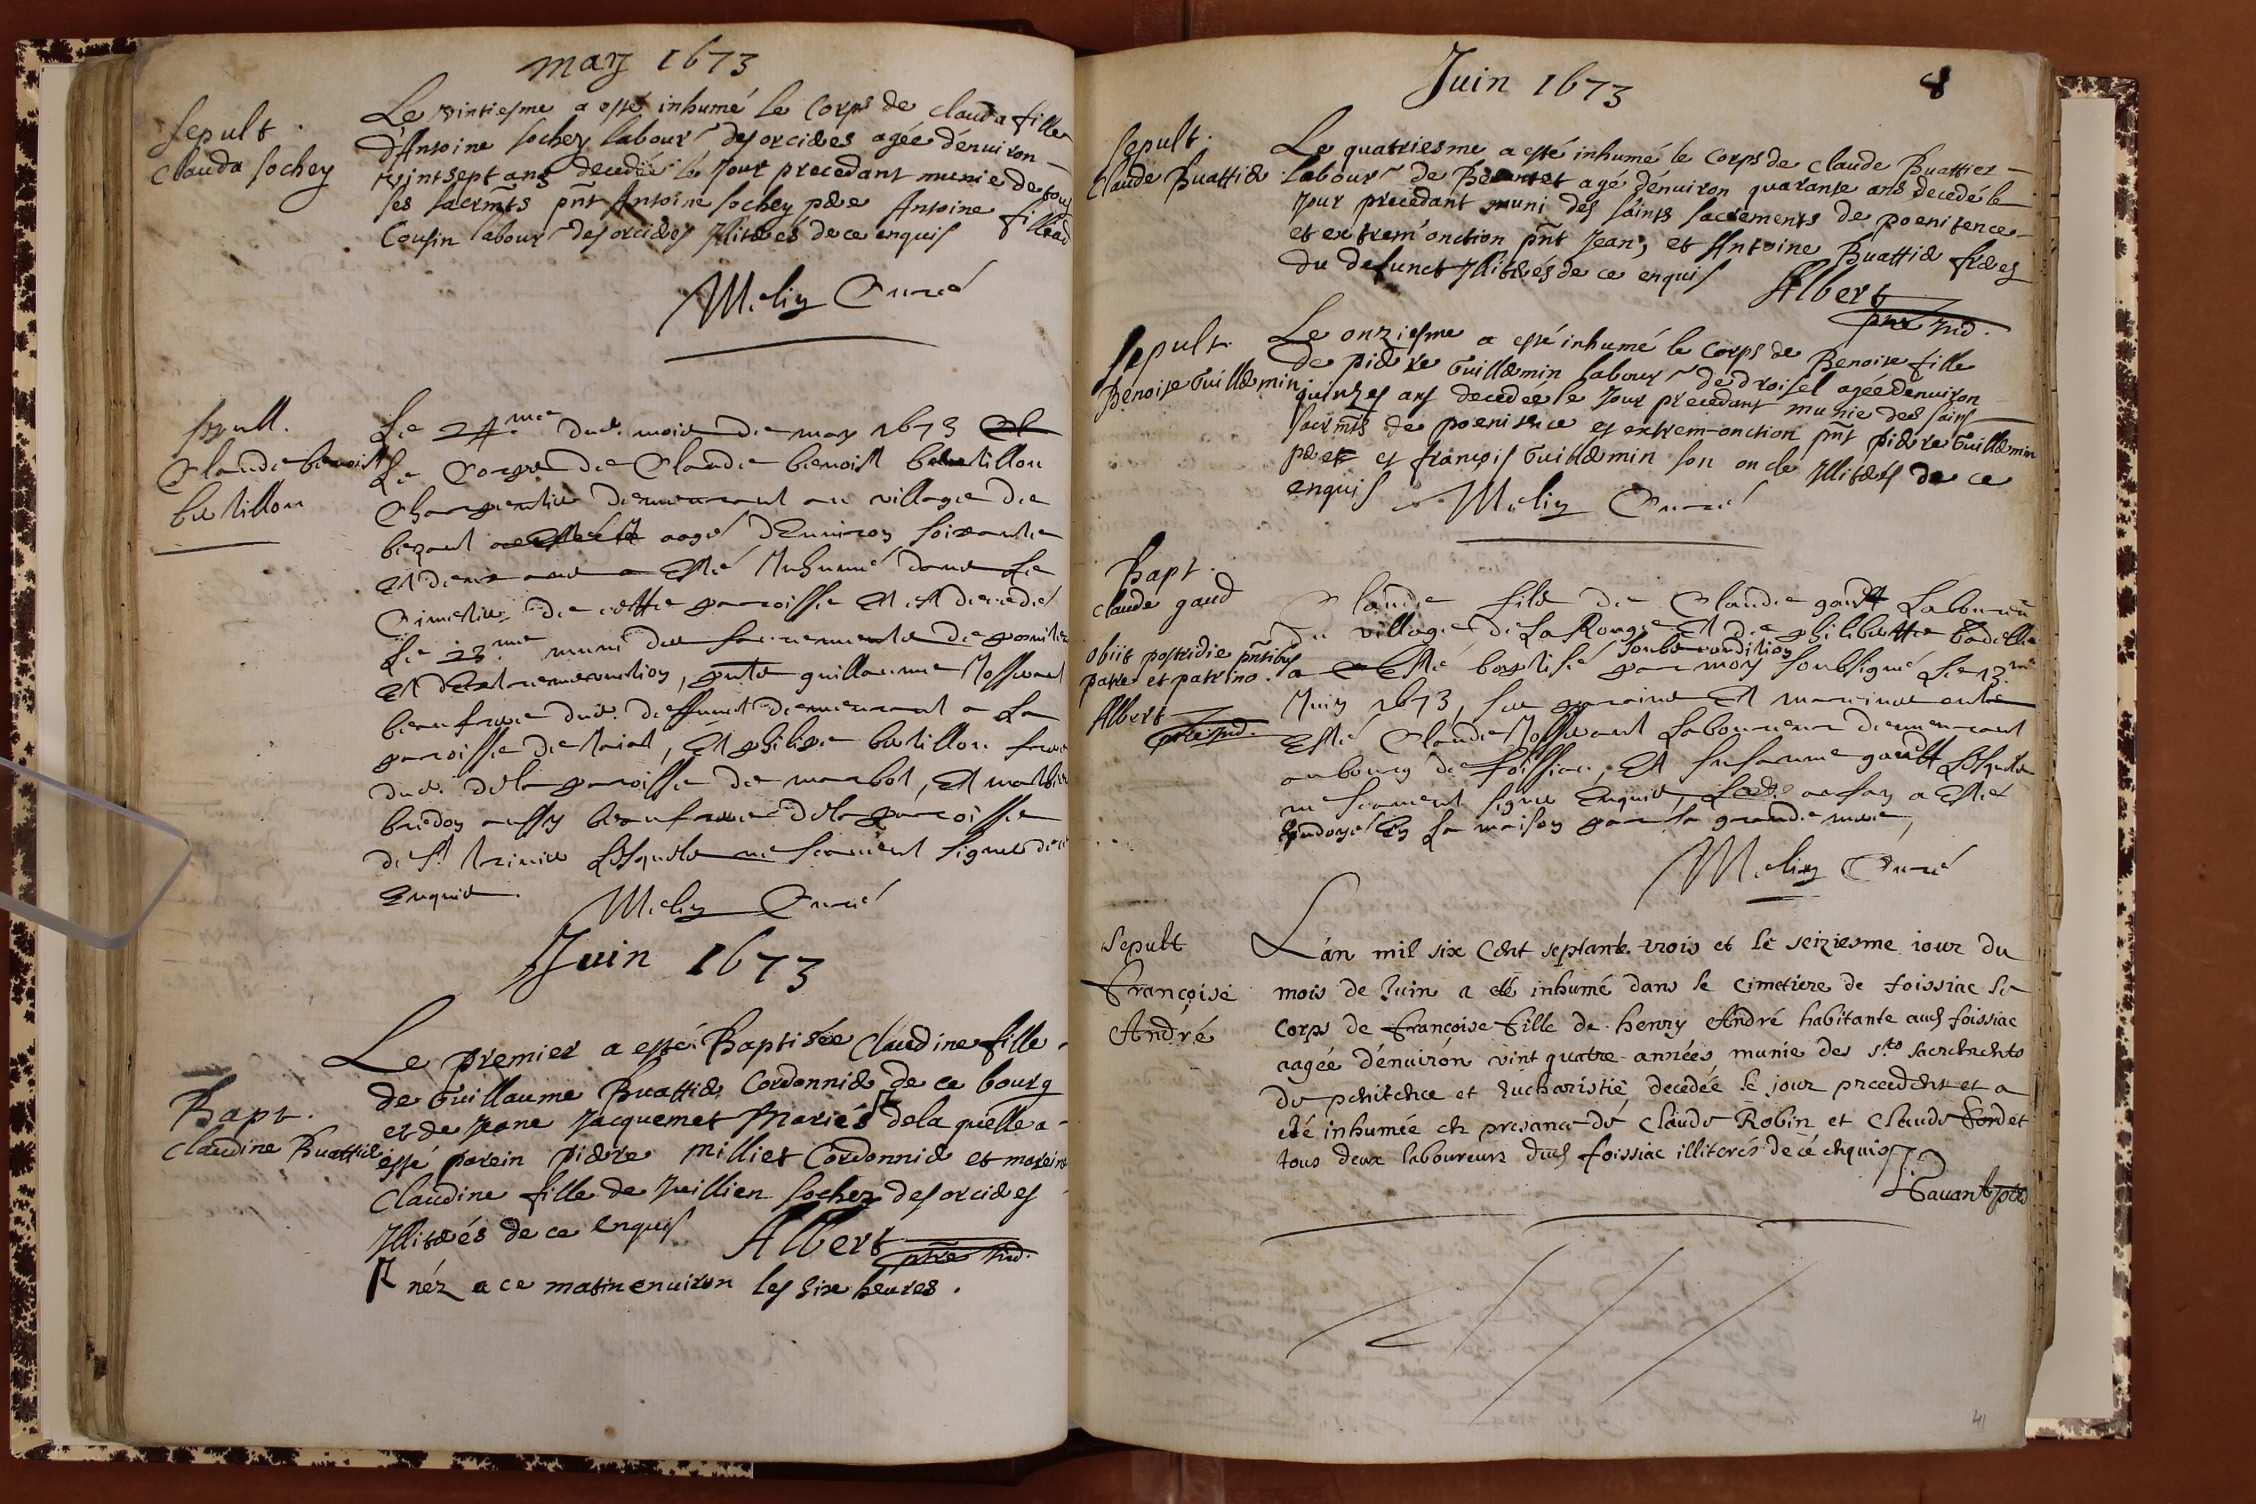 may 1673
Sepult.
Clauda Sochey
Le vintiesme a esté inhumé le Corps de Clauda fille
d'Antoine Sochey labour^r des orcieres agée d'enuiron
vintsept ans decedée le Jour precedant munie de tous
ses sacrm̃ts pñt Antoine Sochey pere Antoine filliad
Cousin labour^r des orcieres Illiterés de ce enquis
Melin Curé
Sepult.
Claude benoist
butillon
Le 24.me dud. moys de may 1673
Le Corps de Claude benoist butillon
Charpentier demeurant au village de
bezant aagé d'Enuiron soixante
et deux ans a Esté Inhumé dans le
Cimetiere de cette parroisse Et est decedé
Le 23.me muni des sacremens de penitence
Et d'Extremeonction, pnts guillaume
beaufrere dud. deffunct demeurant a La
parroisse de , Et philipe butillon frere
dud. de la parroisse de marbot, Et
aussy beaufrere de la parroisse
de St Lesquels ne scauent signer de ce
Enquis.
Melin Curé
Juin 1673
Bapt.
Claudine Buattier
Le premier a esté Baptisée Claudine fille
de Guillaume Buattier Cordonnier de ce bourg
et de Jeane Jacquemet Mariés de la quelle a
esté parein pierre Milliet Cordonnier et mareine
Claudine fille de Juillien Sochey des orcieres
Illiterés de ce enquis Albert
ptre Ind.
néz a ce matin enuiron les six heures.
Juin 1673
8
Sepult.
Claude Buattier
Le quatriesme a esté inhumé le Corps de Claude Buattier
labour^r de agé d'enuiron quarante ans decedé le
Jour precedant muni des saints sacrements de poenitence
et extrem'onction pñt Jean, et Antoine Buattier freres
du defunct Illiterés de ce enquis
Albert
ptre Ind.
Sepult.
Benoite Guillemin
Le onziesme a esté inhumé le Corps de Benoite fille
de pierre Guillemin labour^r de droisel agée d'enuiron
quinzes ans decedée le Jour precedant munie des sains
sacrm̃ts de poenitence et extrem-onction pñt pierre Guillemin
pere et françois Guillemin son oncle Illiterés de ce
enquis Melin Curé
Bapt.
Claude gaud
obiit postridie pñtibus
patre et patrino.
Albert
ptre Ind.
Claude fils de Claude Laboureur
du village de La Rouge Et de philiberte
a Esté baptisé soubs condition par moy soubsigné Le 13.me
Juin 1673, ses parains Et marraines ont
Esté Claude Laboureur demeurant
au bourg de foissia, Et Lesquels
ne scauent signer Enquis, Led. enfan a Esté
Endoyé En La maison par sa grande mere,
Melin Curé
Sepult
Françoise
André
L'an mil six Cent septante trois et le seiziesme iour du
mois de Juin a eté inhumé dans le Cimetiere de foissiac le
Corps de françoise fille de henry André habitante aud foissiac
aagée d'enuirón vint quatre années munie des s.ts sacrements
de penitence et Eucharistie decedée le jour precedent et a
eté inhumée en presance de Claude Robin et Claude
tous deux laboureurs dud foissiac illiterés de ce enquis
Bauant ptre
41